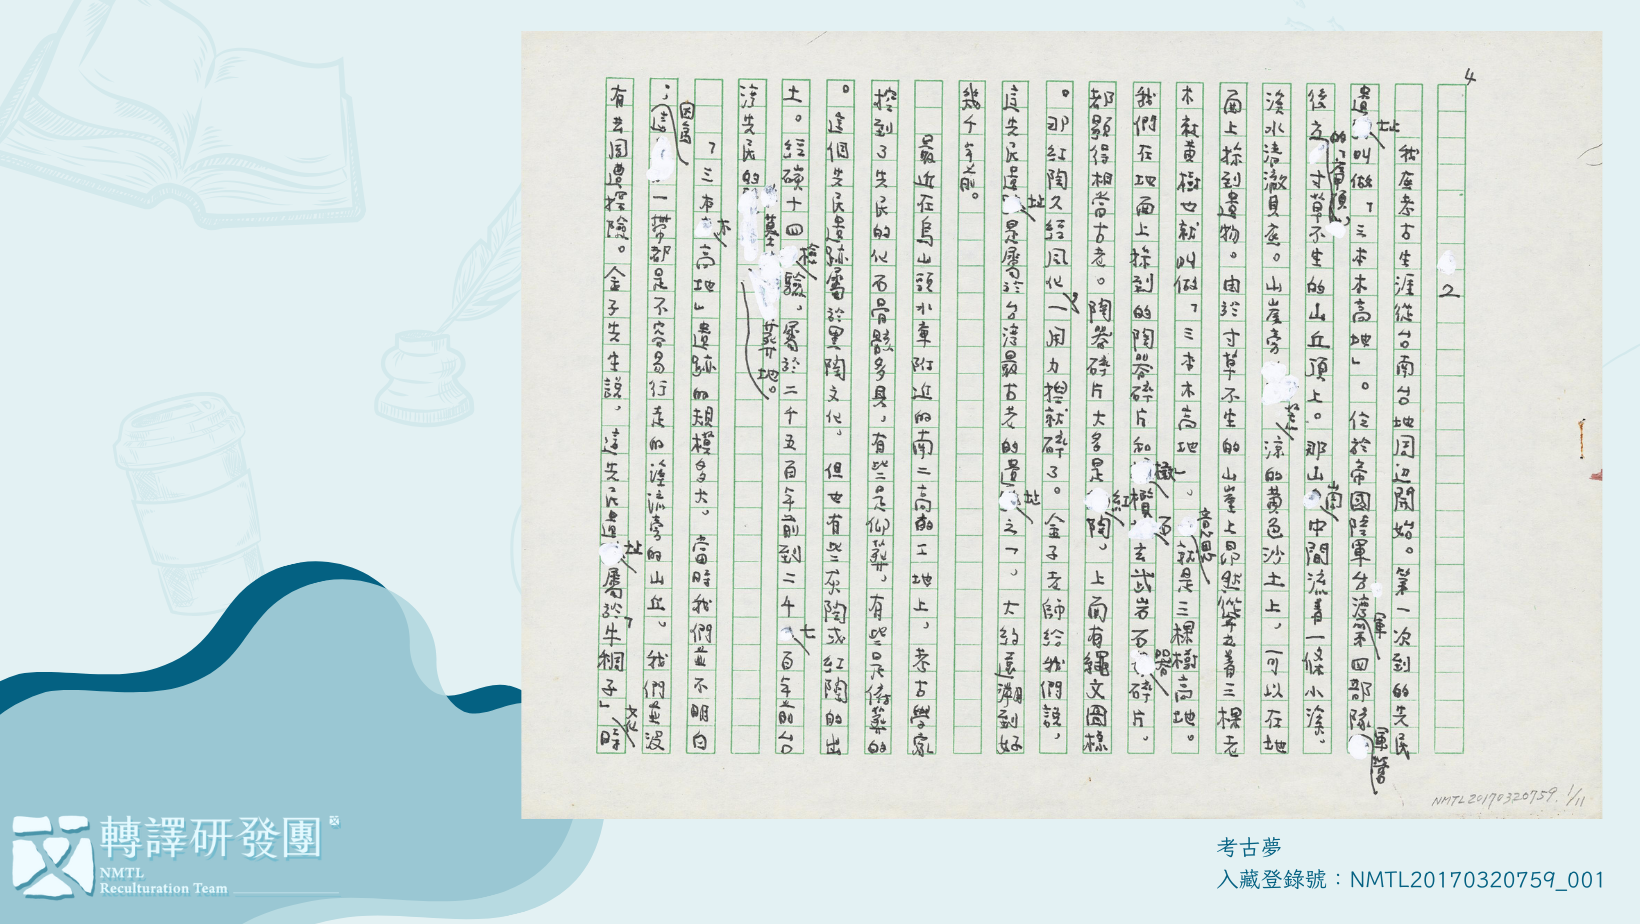 4
2
我在考古生涯從台南台地周边開始。第一次到的先民
遺址叫做「三本木高地」。位於帝國陸軍台湾軍第四部隊軍營
後方的「南頂」寸草不生的山丘頂上。那山崗中間流着一條小溪。
溪水清澈見底。山崖旁荒涼的黄色沙土上，可以在地
面上採到遺物。由於寸草不生的山崖上昂然聳立着三棵老
木就黄樹也就叫做「三本木高地」。意思就是三棵樹高地。
我們在地面上採到的陶器碎片和橄欖石玄武岩石器碎片。
都顯得相當古老。陶器碎片大多是紅陶，上面有繩文圖樣
。那紅陶久經風化一用力捏就碎了。金子老師給我們說，
這先民遺址是屬於台湾最古老的遺址之一，大約遠溯到好
幾千年前。
最近在烏山頭水車附近的南二高的工地上，考古學家
挖到了先民的化石骨骸多具，有些是仰葬，有些是俯葬的
。這個先民遺跡屬於黑陶文化，但也有些灰陶或紅陶的出
土。經碳十四檢驗，屬於二千五百年前到二千七百年前台
湾先民的墓葬地。
「三本木高地」遺跡的規模多大，當時我們並不明白
；因為這一帶都是不容易行走的溪流旁的山丘。我們並没
有去周遭探險。金子先生說，這先民遺址屬於「牛稠子」文化時
NMTL20170320759. 1/11
轉譯研發團
NMTL
Reculturation Team
考古夢
入藏登錄號：NMTL20170320759_001